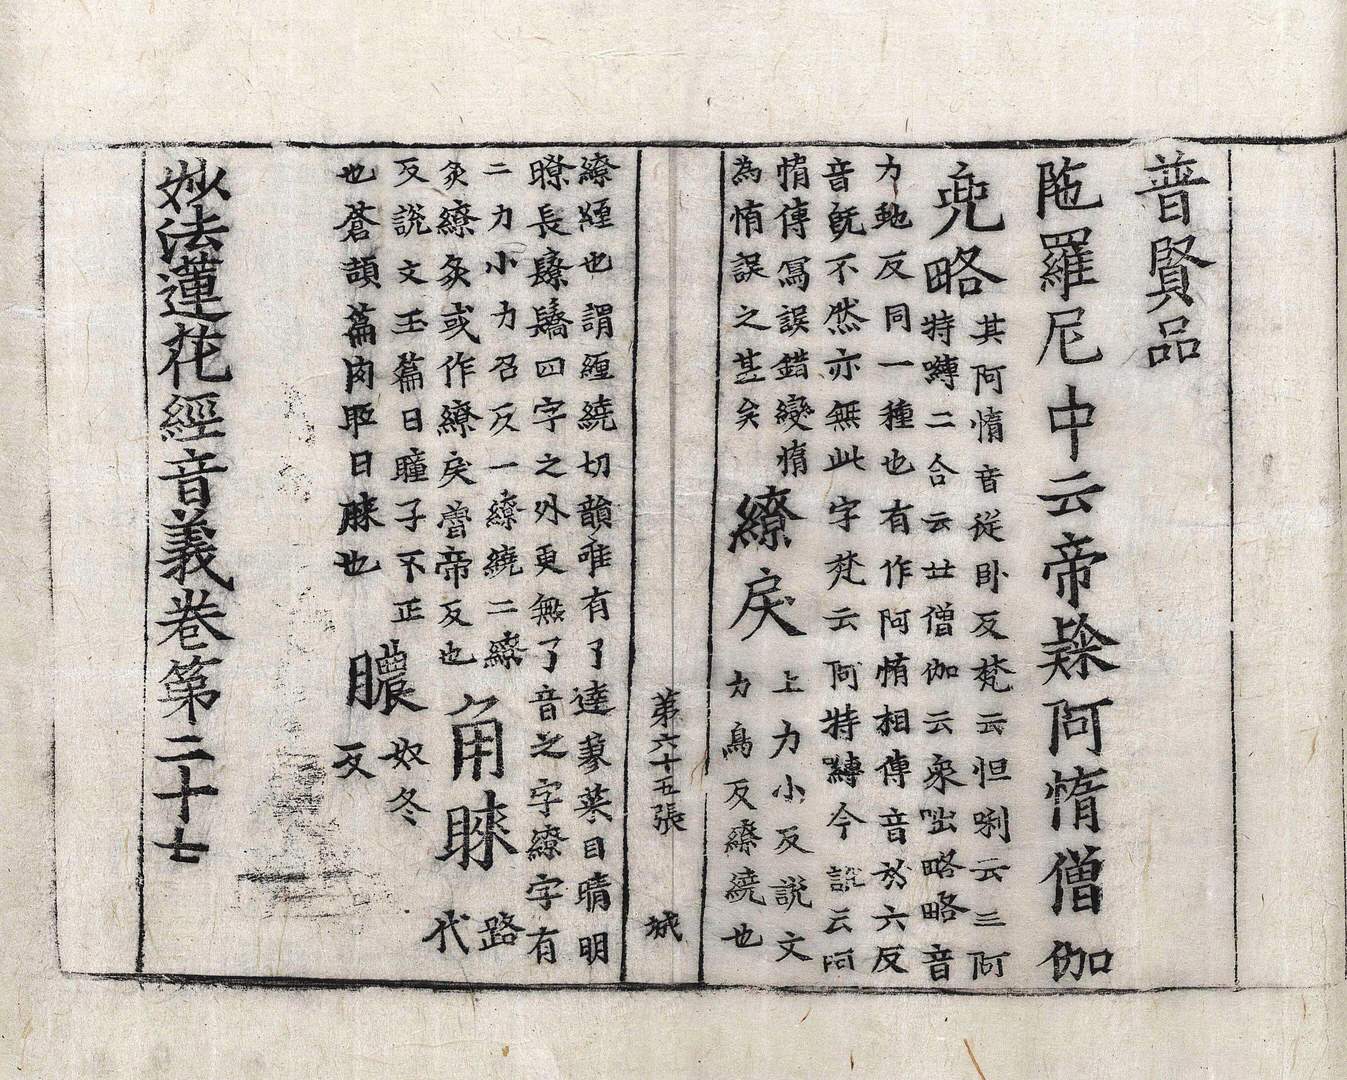 普賢品
陁羅尼中云帝𨽻阿惰僧伽
兜略其阿惰音從卧反梵云怛唎云三阿
特嚩二合云廿僧伽云衆咄略略音
力馳反同一種也有作阿惰相傳音於六反
音既不然亦無此字梵云阿特縛今說云阿
惰傳寫誤錯變
為惰誤之甚矣
繚戾上力小反說文
力鳥反繚繞也
第六十五張 城
繚纒也謂纒繞切韻唯有了達蓼目睛明
瞭長四字之外更無了音之字繚字有
二力小力召反一繚繞二繚
灸繚灸或作繚戾帝反也
角睞路代
反說文玉篇曰瞳子不正
也蒼頡篇內眂曰睞也
膿奴冬反
妙法蓮花經音義卷第二十七